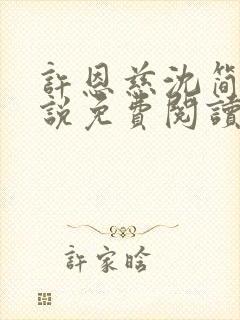 許恩慈沈簡
說免費閱讀
許家晗